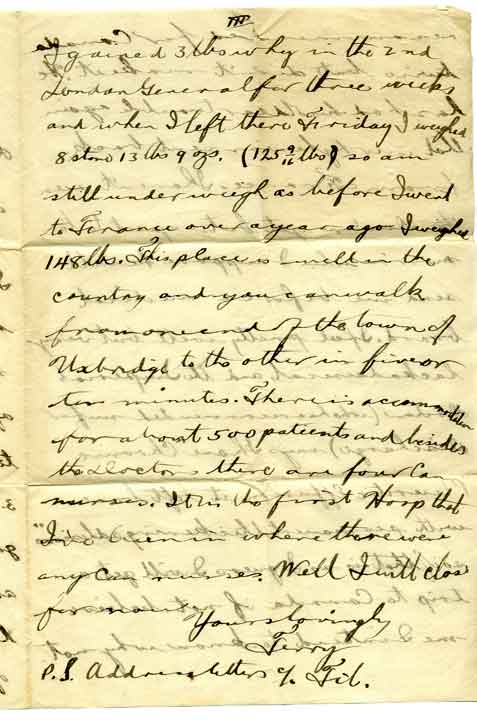 III
I gained 3 lbs why in the 2nd
London General for three weeks
and when I left there Friday I weighed
8 stone 13 lbs 9 ozs. (125 9/16 lbs) so am
still under wiegh as before I went
to France over a year ago I weighed
148 lbs. This place is well in the
country and you can walk
from one end of the town of
Uxbridge to the other in five or
ten minutes. There is accommodation
for about 500 patients and besides
the Doctors there are four Can
nurses. It is the first Hosp that
I've been in where there were
any Can nurses. Well I will close
for now
Yours lovingly
Terry
P.S. Address letters c/o Fil.